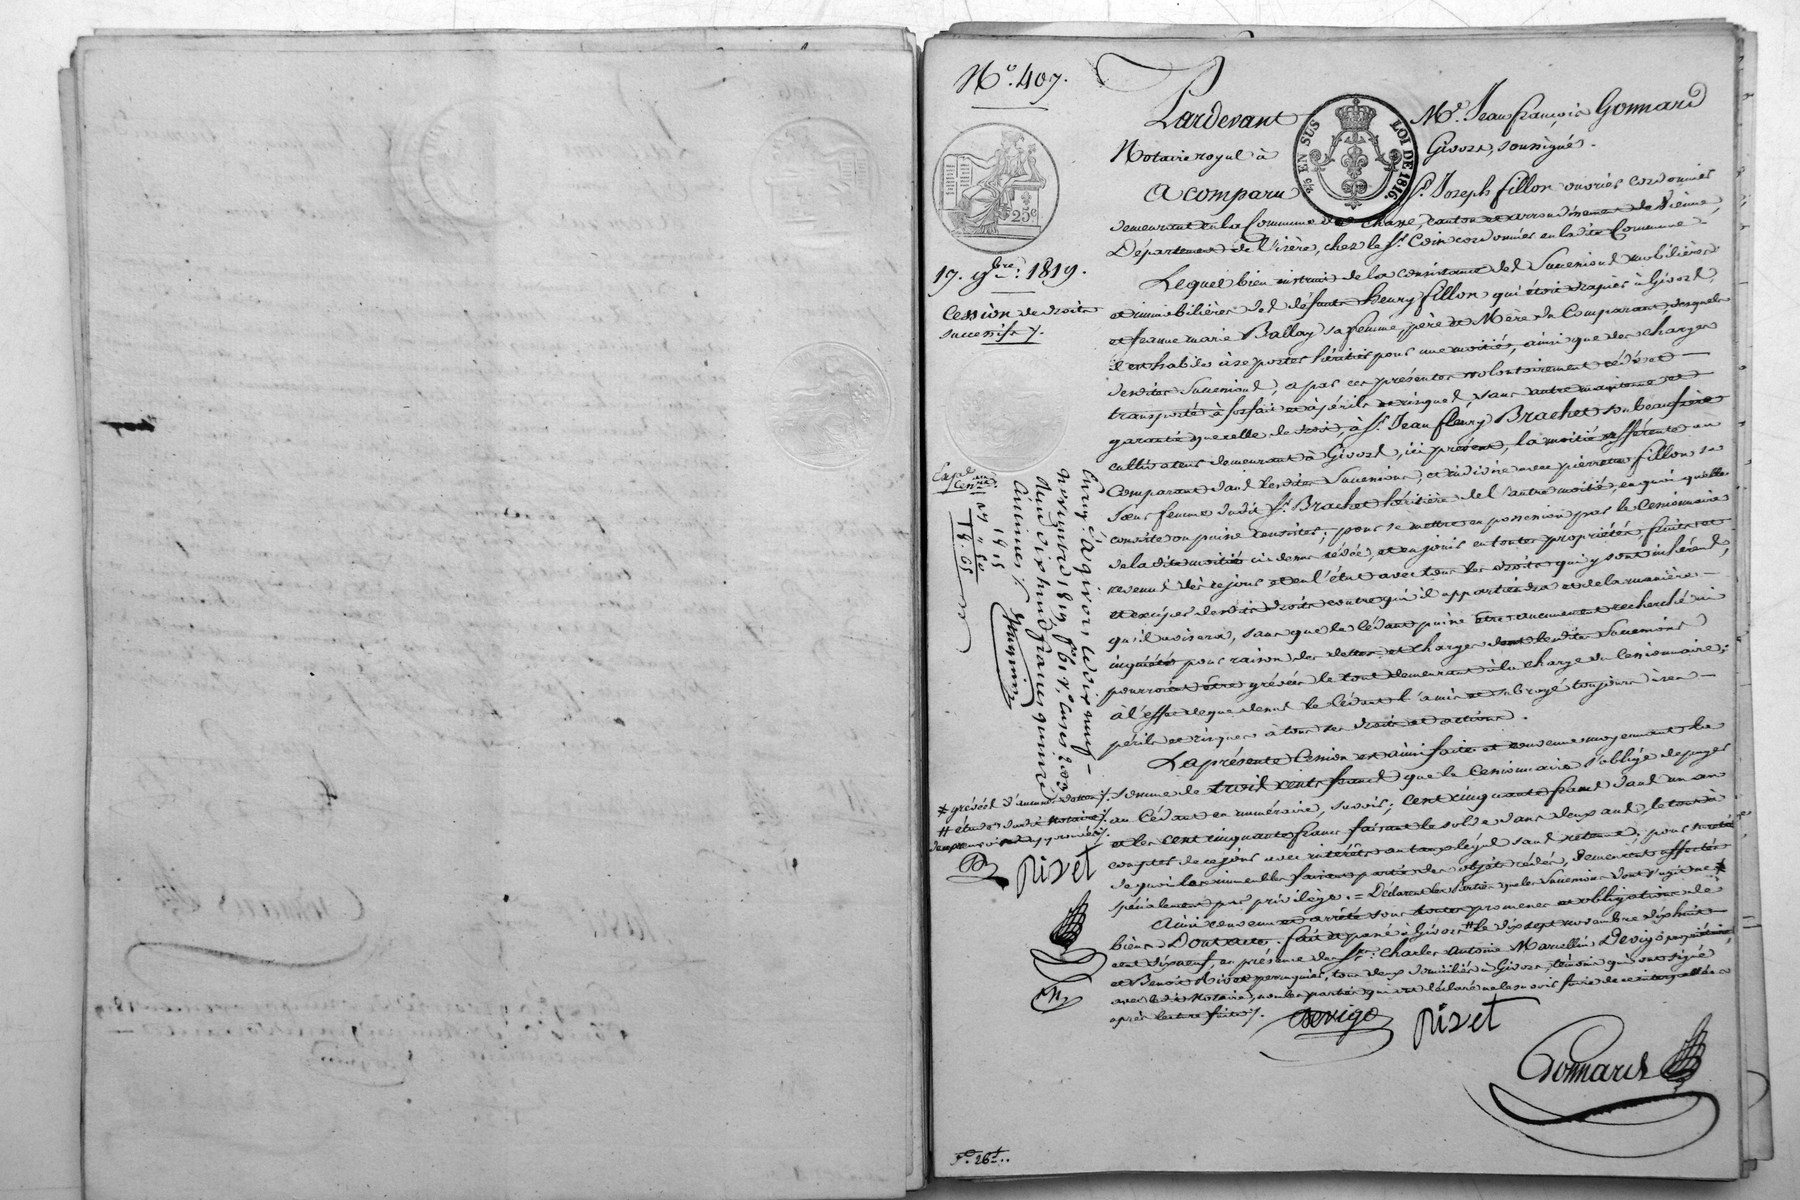 N.° 407.
Pardevant Me. Jean françois Gonnard
Notaire royal à Givors, soussigné.
A comparu Sr. Joseph fillon ouvrier cordonnier
demeurant en la Commune de Chane, canton et arrondissement de Vienne
Département de l'isère, chez le Sr. Coin cordonnier en la dite Commune,
Lequel bien instruit de la consistance des Successions mobilières
et immobilières des défunts fleury fillon qui étoit drapier à Givors,
et jeanne marie Ballay sa femme, père et Mère du Comparant, desquels
il est habile à se porter héritier pour une moitié, ainsi que des charges
desdites Successions, a par ces présentes volontairement cédé et
transporté à forfait et à périls et risques, sans autre maintenue et
garantie que celle de droit, à Sr. Jean fleury Brachet son beau frère
cultivateur demeurant à Givors, ici présent, la moitié afférente au
Comparant dans lesdites Successions, et indivise avec pierrette fillon sa
sœur femme dudit Sr. Brachet héritière de l'autre moitié, en quoi qu'elle
consiste ou puisse consister; pour se mettre en possession par le Cessionnaire
de la dite moitié ci dessus cédée, et en jouir en toutes propriétés, fruits et
revenus dès ce jour et en l'état avec tous les droits qui y sont inhérens,
et exciper desdits droits contre qui il appartiendra et de la manière
qu'il avisera, sans que le Cédant puisse être aucunement recherché ni
inquiété pour raison des dettes et charges dont lesdites Successions
pourroient être grévées le tout demeurant à la charge du Cessionnaire;
à l'effet de que dessus le Cédant l'a mis et subrogé toujours à ses
périls et risques à tous ses droits et actions.
La présente Cession est ainsi faite et convenue moyennant la
somme de trois cents francs que le Cessionnaire s'oblige de payer
au Cédant en numéraire, savoir; cent cinquante francs dans un an
et les cent cinquante francs faisant le solde dans deux ans, le tout à
compter de ce jour avec intérêts au taux légal sans retenue; pour sureté
de quoi les immeubles faisant partie des objets cédés, demeurent affectés
spécialement par privilège. = Déclarent les Parties que les Successions dont s'agit ne *
Ainsi convenu et arrêté sous toutes promesses et obligations de
biens. Dont acte. fait et passé à Givors # le dix sept novembre dix huit
cent dix neuf, en présence de Srs. Charles Antoine Marcellin Devigo
et Benoit Rivet perruquier, tous deux domiciliés à Givors, témoins qui ont signé
avec le dit Notaire, non les parties qui ont déclaré ne le savoir faire de ce interpellées
après lecture faite.
Devigo Rivet
Gonnard
25c
5/10 EN SUS LOI DE 1816
17. 9bre: 1819.
Cession de droits
successifs.
Expé
Cens
Enreg. à givors le dix neuf
novembre 1819 f°
Reçu dix huit francs quinze
centimes
* grévées d'aucunes dettes
# étude dudit Notaire
Rivet